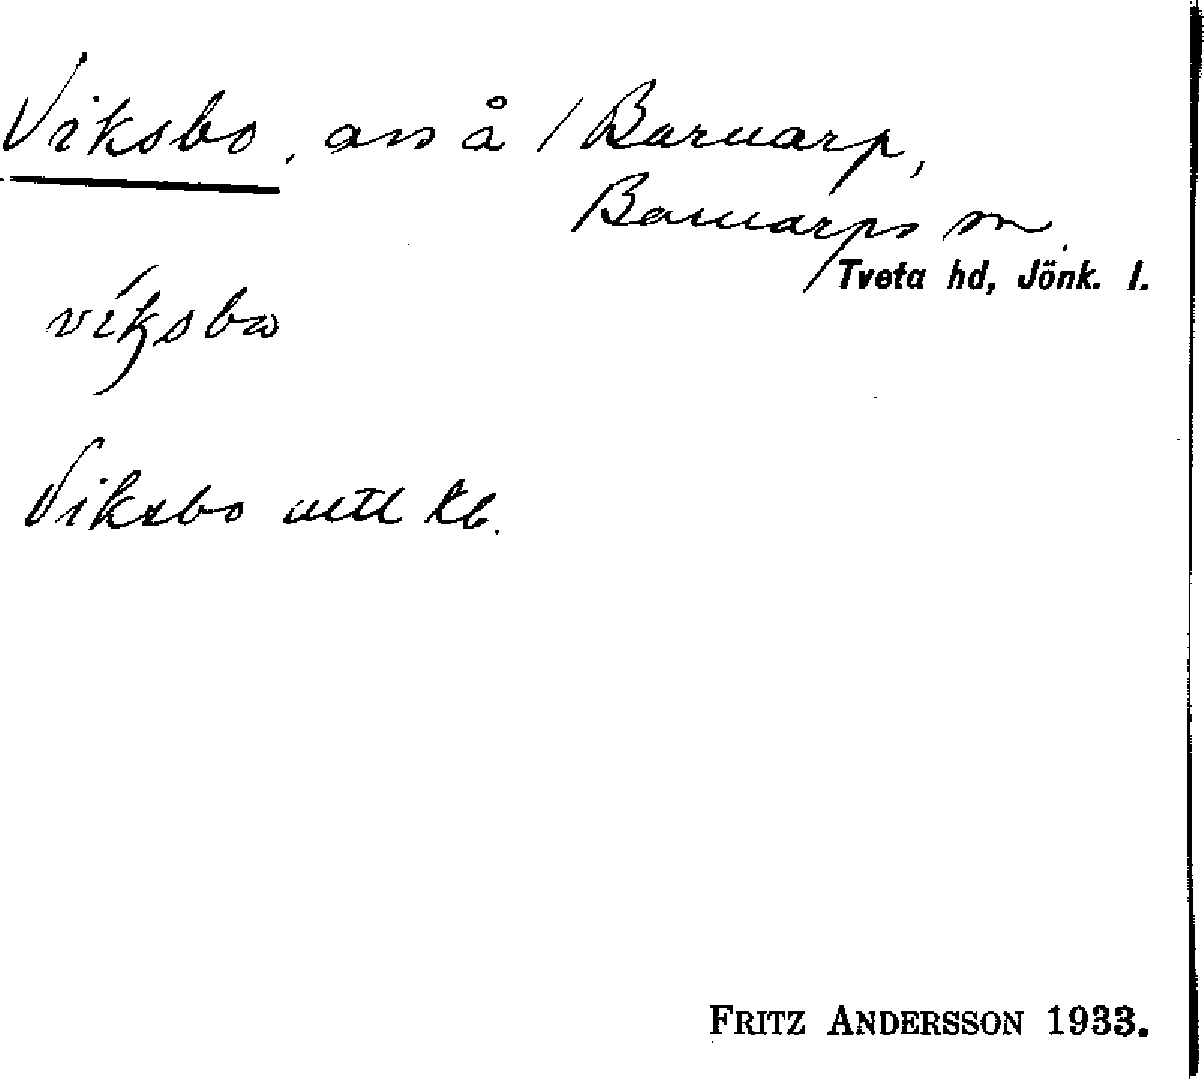 Viksbo, avs å / Barnarp,
Barnarps sn.
Tveta hd, Jönk. l.
víksbω
Viksbo uttl kb.
FRITZ ANDERSSON 1933.